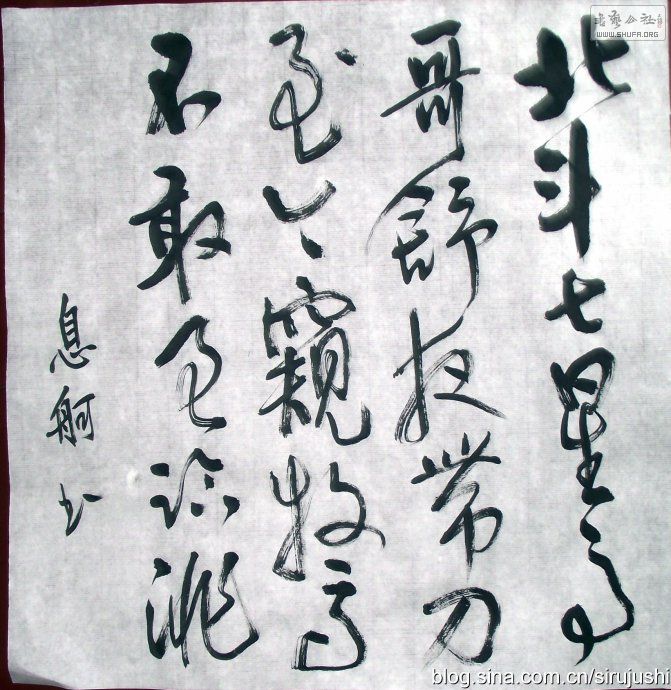 北斗七星高
哥舒夜带刀
至今窥牧马
不敢过临洮
息舸书
書藝公社
WWW.SHUFA.ORG
blog.sina.com.cn/sirujushi